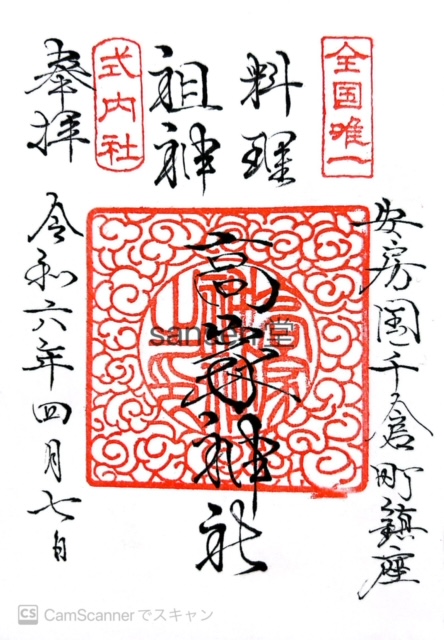 全国唯一
安房国千倉町鎮座
料理
祖神
式内社
高家神社
奉拝
令和六年四月七日
CS CamScannerでスキャン